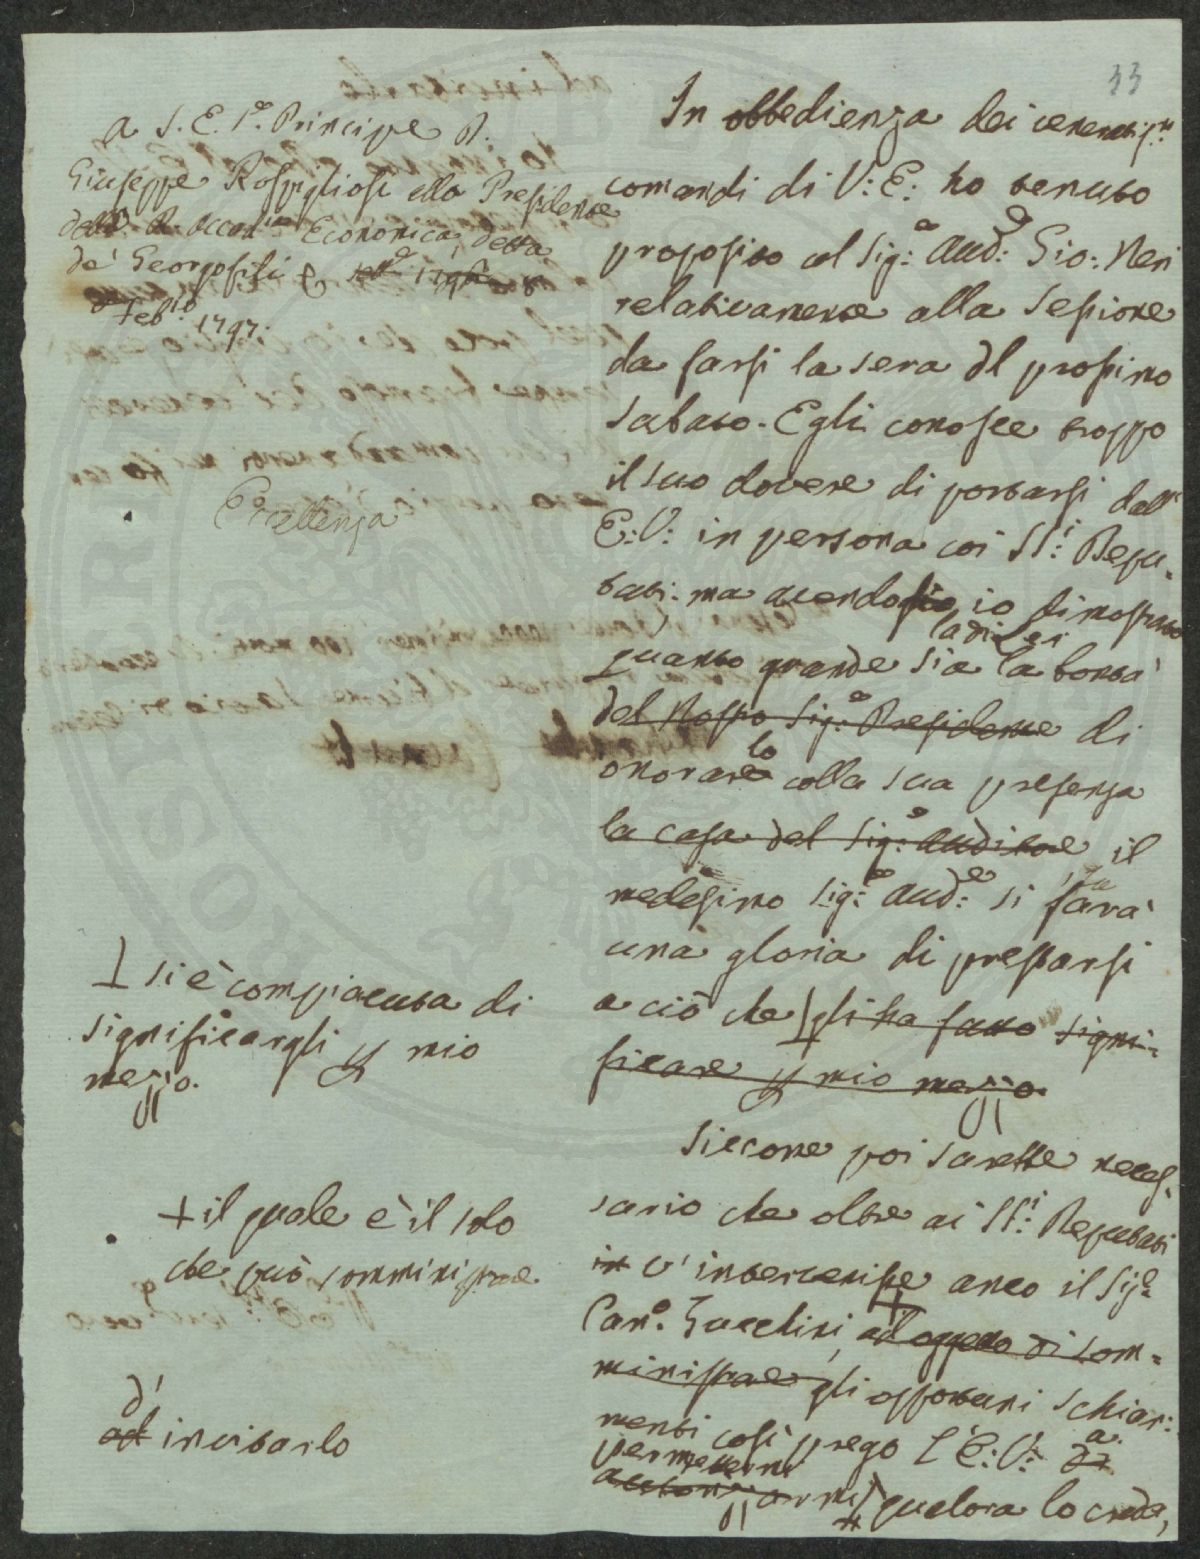 33
a S. E. Sig.e Principe D.
Giuseppe Rospigliosi alla Presidenza
della R. Accad.ia Economica, detta
de' Georgofili
Feb.io 1797.
Eccellenza
In obbedienza dei veneratiss.mi
comandi di V: E: ho tenuto
proposito col Sig:e Aud:e Gio: Neri
relativamente alla Sessione
da farsi la sera del prossimo
Sabato. Egli conosce troppo
il suo dovere di portarsi dall'
E: V: in persona coi SS:i Depu-
tati. ma avendogli io dimostrato
quanto grande sia la di Lei bontà
del Nostro Sig:e Presidente di
onorarlo colla sua presenza
la casa del Sig:e Auditore il
medesimo Sig:e Aud:e si farà
una gloria di prestarsi
a ciò che gli ha fatto signi-
ficare p mio mezzo.
⊥ si è compiaciuta di
significargli p mio
mezzo.
Siccome poi sarebbe neces-
sario che oltre ai SS:i Deputati
in v'intervenisse anco il Sig.e
Can.o Zucchini, ad oggetto di som-
ministrare gli opportuni schiari-
menti così prego l'E: V: di a
permettermi
qualora lo creda,
+ il quale è il solo
che può somministrare
ad d'invitarlo